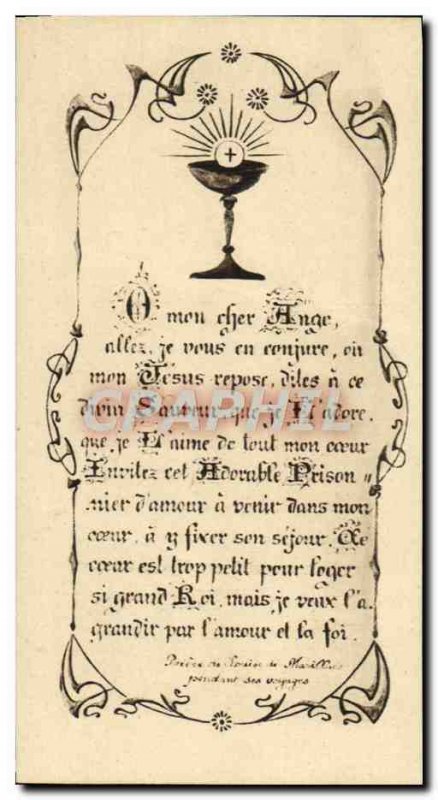 O mon cher Ange,
allez, je vous en conjure, où
mon Jésus repose, dites à ce
divin Sauveur, que je L'adore,
que je L'aime de tout mon cœur
Invitez cet Adorable Prison =
nier d'amour à venir dans mon
cœur, à y fixer son séjour. Ce
cœur est trop petit pour loger
si grand Roi, mais je veux l'a-
grandir par l'amour et la foi.
Prière de Louise de Marillac
pendant ses voyages
CRAPHIL